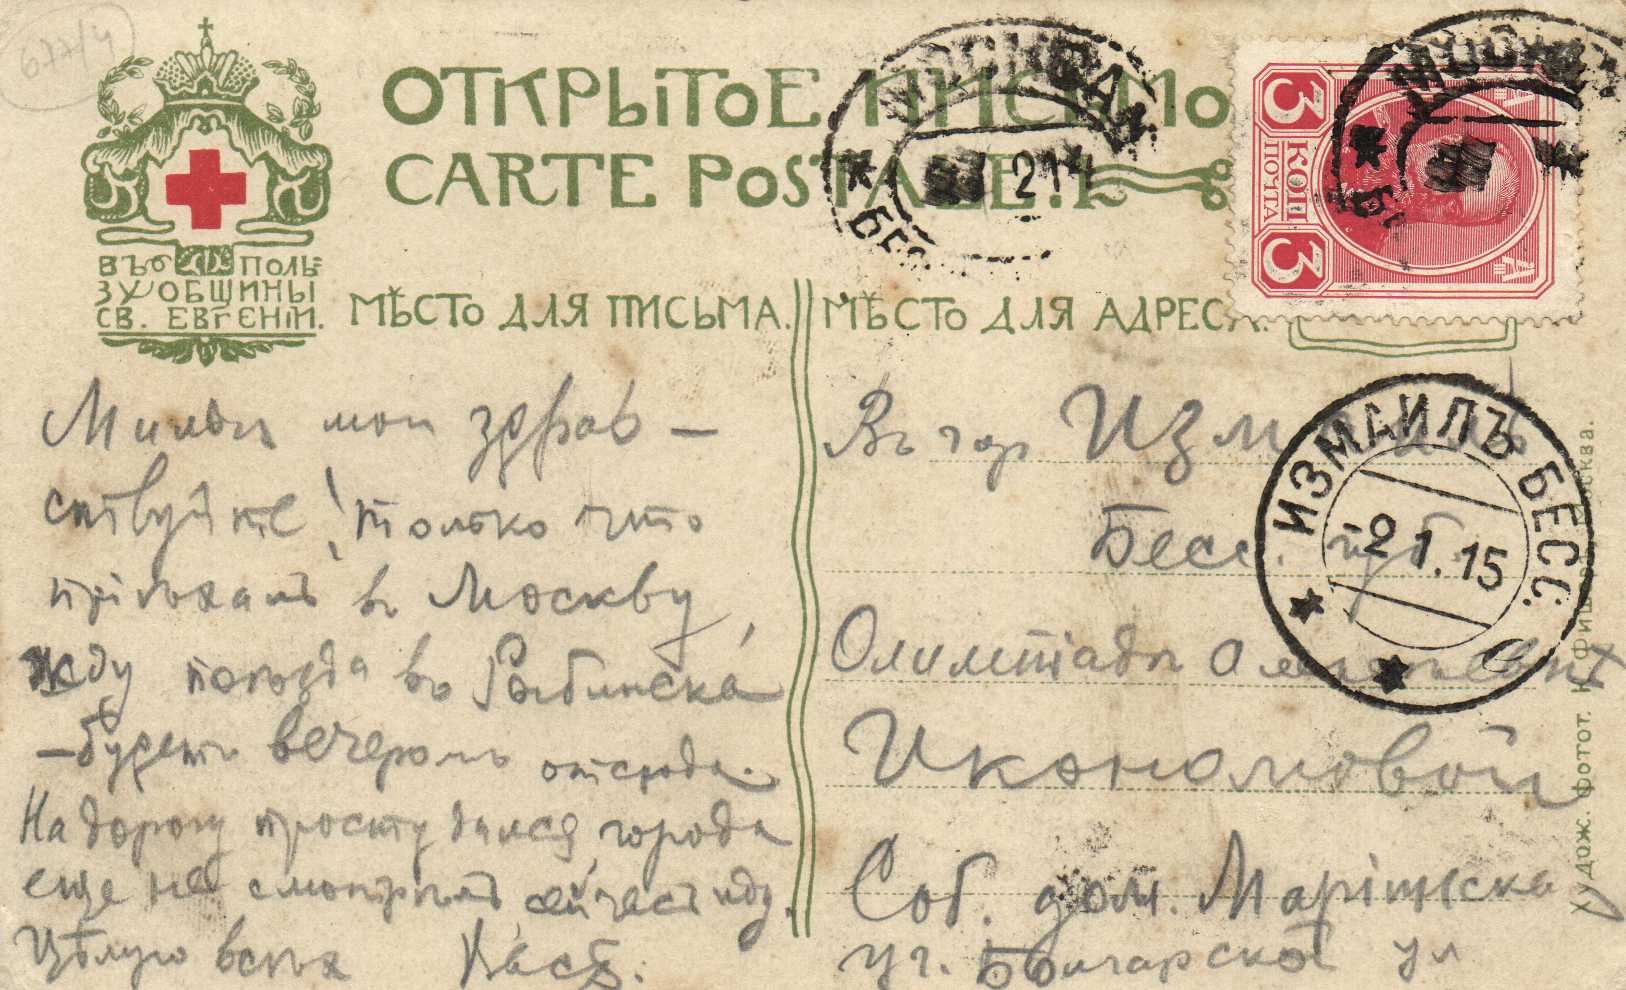 677/4
ОТКРЫТОЕ ПИСЬМО
CARTE POSTALE.
ВЪ ПОЛЬ=
ЗУ ОБЩИНЫ
СВ. ЕВГЕНІИ.
МѢСТО ДЛЯ ПИСЬМА.
МѢСТО ДЛЯ АДРЕСА.
МОСКВА
БЕС
214
3 КОП 3
ПОЧТА
МОСКВА
Милыя мои здрав-
ствуйте! только что
пріѣхалъ в Москву
жду поѣзда въ Рыбинска
-будетъ вечеромъ отсюда.
На дорогу простудился, города
еще не смотрѣлъ сейчасъ иду.
Цѣлую всѣхъ
Въ гор Измаилъ
Бесс. губ.
Олимпіадѣ
Икономовой
Соб. дом.
уг. Болгарской ул
ИЗМАИЛЪ БЕСС.
2 1.15
Худож. Фотот. К. Фишеръ, Москва.